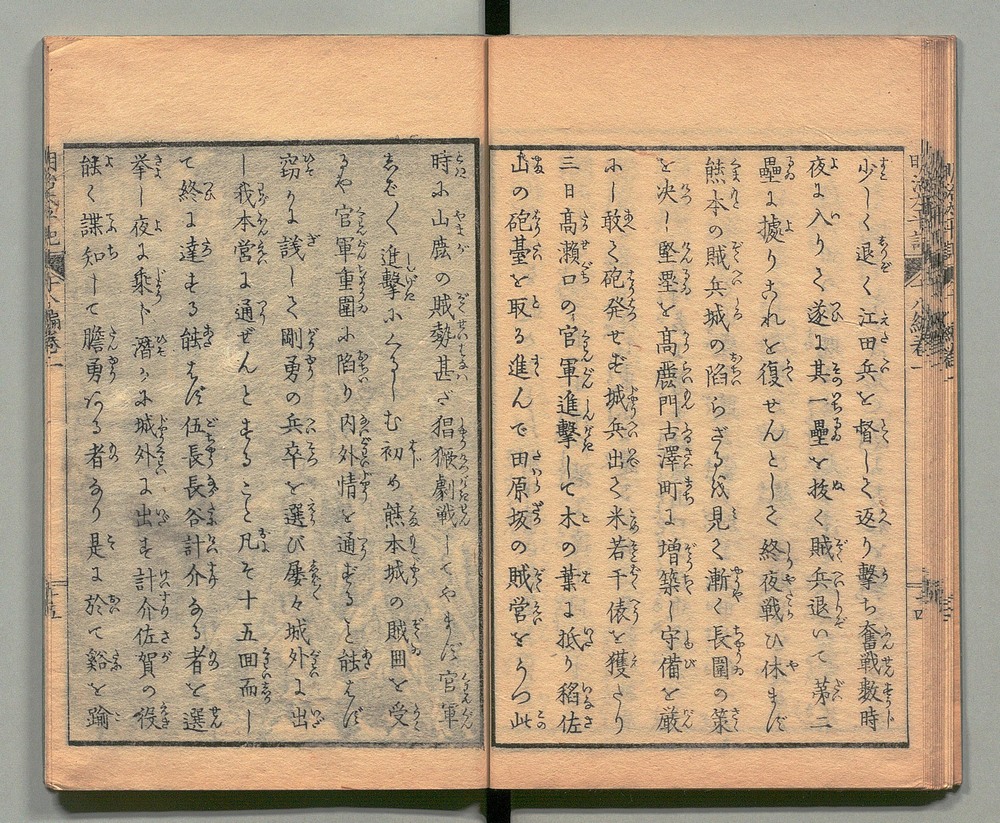 少しく退く江田兵を督しく返り撃ち奮戦数時
夜に入りく遂に其一壘を抜く賊兵退いて第二
壘に據りこれを復せんとしく終夜戦ひ休まず
熊本の賊兵城の陥らざるを見く漸く長圍の策
を决し堅壘を高麗門古澤町に増築し守備を厳
にし敢く砲発せず城兵出く米若干俵を獲たり
三日高瀬口の官軍進撃して木の葉に抵り稲佐
山の砲基を取る進んで田原坂の賊営をうつ此
時に山鹿の賊勢甚ざ猖獗劇戦してやまず官軍
しばく進撃にくるしむ初め熊本城の賊囲を受
るや官軍重圍に陥り内外情を通ずると能はず
窃りに議しく剛勇の兵卒を選び屡々城外に出
し我本営に通ぜんとすること凡そ十五回而し
て終に達する能はず伍長長谷計介なる者を選
挙し夜に乗ト潜かに城外に出す計介佐賀の役
能く諜知して膽勇ある者なり是に於て谿を踰
明治太平記
十八編巻一